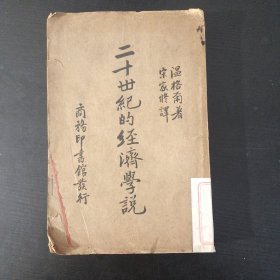 温格爾著
宗家修譯
二十世紀的經濟學説
商務印書館發行